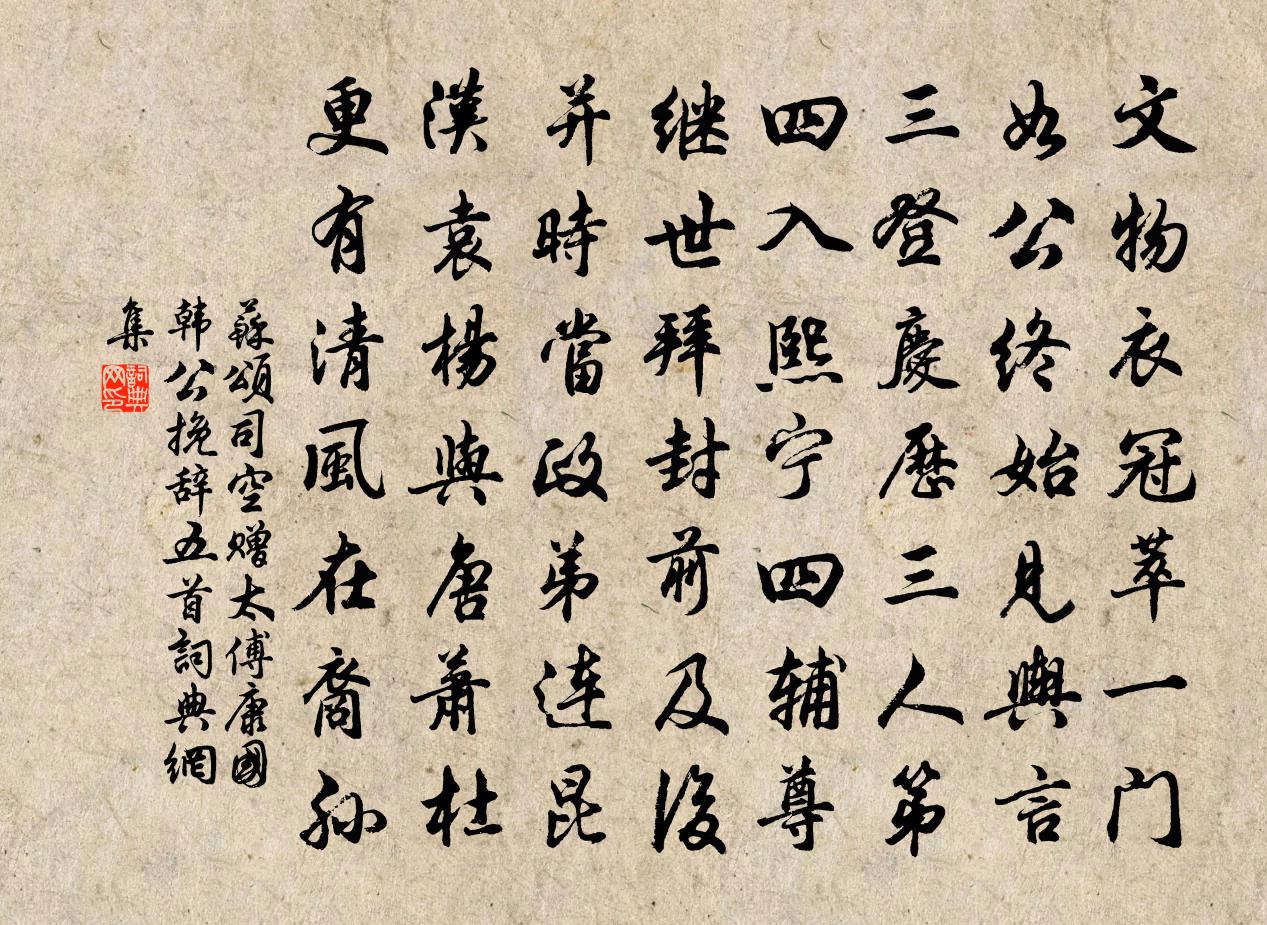 文物衣冠萃一门
如公终始见舆言
三登慶歷三人第
四入熙宁四辅尊
继世拜封前及後
并時當政弟连昆
漢袁楊與唐萧杜
更有清風在裔孙
蘇頌司空赠太傅康國
韩公挽辞五首詞典網
集
詞典
网印